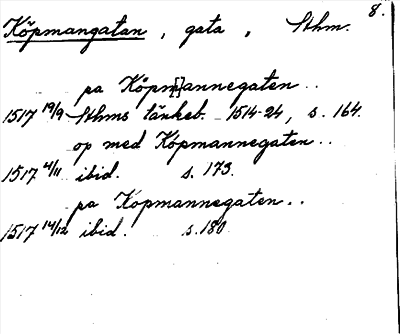 8.
Köpmangatan, gata, Sthm.
pa Köpm[]annegaten..
1517 19/9 Sthms tänkeb. 1514-24, s. 164.
op med Köpmannegaten..
1517 4/11 ibid. s. 173.
pa Köpmannegaten..
1517 14/12 ibid. s. 180.